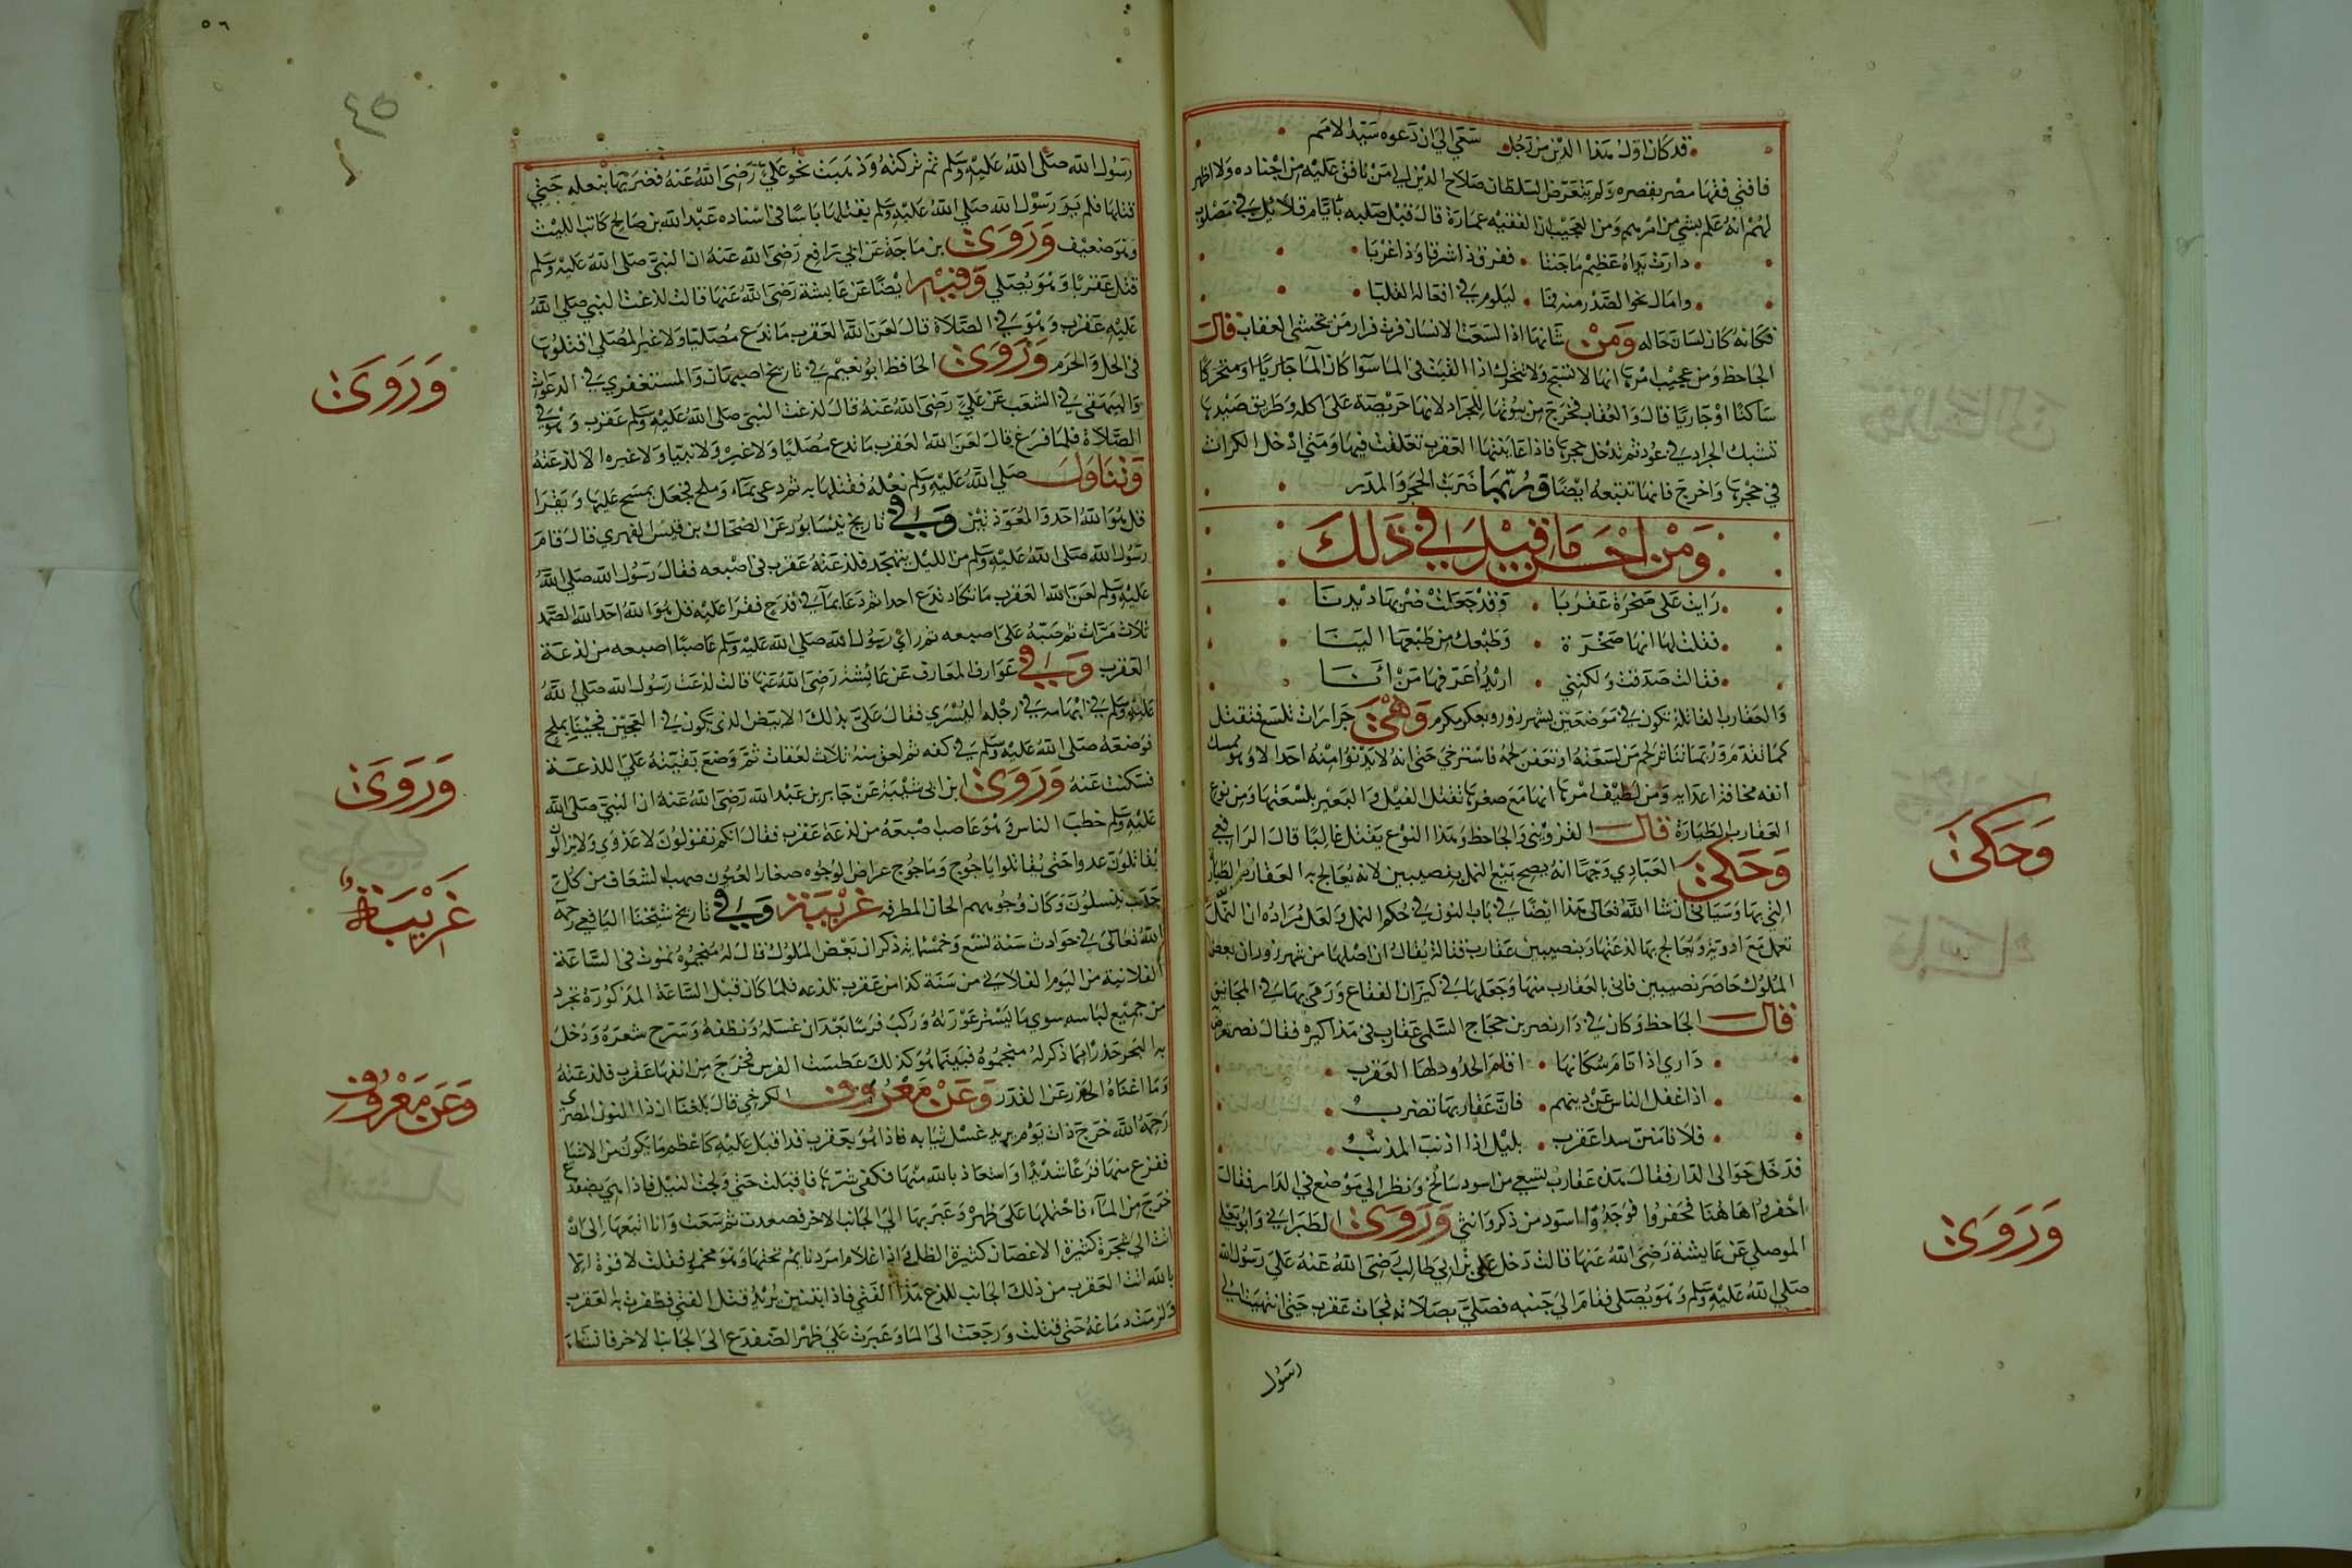 قد كان اول هذا الدين من رجل سعى الي ان دعوه سيد الامم
فافتي فقها مصر بقصره ولم يتعرض لسلطان صلاح الدين الي من نافق عليه من اجناده ولا اظهر
لهم انه علم بشي من امرهم ومن العجيب ان الفقيه عمارة قال قبل صلبه بايام قلائل في مصلوب
ومال نحو الصدر منه فما ليلوم في افعاله القلبا
فكانه كان لسان حاله ومن شانها اذا لسعت الانسان فرت فرار من يخشى العقاب قال
الجاحظ ومن عجيب امرها انها لا تسبح ولا تتحرك اذا القيت في الماء سوآ كان الماء جاريا او متحركا
ساكنا او جاريا قال والعقاب تخرج من بيوتها للجراد لانها حريصة على اكله وطريق صيدها
تشبك الجراد في عود ثم تدخل حجرها فاذا عاينتها العقرب تعلقت فيها ومتى ادخل الكراث
في حجرها واخرج فانها تتبعه ايضا وربما ضربت الحجر والمدر
ومن احسن ما قيل في ذلك
رايت على صخرة عقربا وقد جعلت ضربها ديدنا
فقلت لها انها صخرة وطبعك من طبعها الينا
فقالت صدقت ولكنني اريد اعرفها من انا
والعقارب القاتلة تكون في موضعين بشهرزور وبعسكر مكرم وهي جرارات تلسع فتقتل
كما تقدم وربما تناثر لحم من لسعته او تعفن لحمه فاسترخي حتى انه لا يدنوا منه احد الا وهو يمسك
انفه مخافة اعدائه ومن لطيف امرها انها مع صغرها تقتل الفيل والبعير بلسعتها ومن نوع
العقارب الطيارة قال القزويني والجاحظ وهذا النوع يقتل غالبا قال الرافعي
وحكى العبادي وجها انه يصح بيع النمل بنصيبين لانه يعالج به العقارب الطيارة
التي بها وسياتي ان شا الله تعالى هذا ايضا في باب النون في حكم النمل ولعل مراده ان النمل
تعمل مع ادوية ويعالج بها لذعتها وبنصيبين عقارب قتالة يقال ان اصلها من شهرزور وان بعض
الملوك حاصر نصيبين فاتى بالعقارب منها وجعلها في كيزان الفقاع ورمى بها في المجانيق
قال الجاحظ وكان في دار نصر بن حجاج السلمي عقارب
داري اذا نام سكانها اقام الحدود لها العقرب
اذا غفل الناس عن دينهم فان عقاربها تضرب
فلا تامنن سرا عقرب بليل اذا اذنب المذنب
فدخل حوا الى الدار فقال هذه عقارب تسقي من اسود سالخ ونظر الي موضع في الدار فقال
احفروا هاهنا فحفروا فوجدوا اسودين ذكر وانثى وروى الطبراني وابو يعلى
الموصلي عن عايشة رضى الله عنها قالت دخل علي بن ابي طالب رضى الله عنه على رسول الله
صلي الله عليه وسلم وهو يصلى فقام الي جنبه فصلى بصلاته فجات عقرب حتى انتهيت الي
رسول
وحكى
وروى
٥٦
رسول الله صلى الله عليه وسلم ثم تركته وذهبت نحو علي رضى الله عنه فضربها بنعله حتي
قتلها فلم ير رسول الله صلي الله عليه وسلم بقتلها باسا في اسناده عبد الله بن صالح كاتب الليث
وهو ضعيف وروى بن ماجة عن ابي رافع رضى الله عنه ان النبي صلى الله عليه وسلم
قتل عقربا وهو يصلي وفيه ايضا عن عايشة رضى الله عنها قالت لذغت النبي صلي الله
عليه عقرب وهو في الصلاة قال لعن الله العقرب ما تدع مصليا ولا غير المصلي اقتلوها
في الحل والحرم وروى الحافظ ابو نعيم في تاريخ اصبهان والمستغفري في الدعوات
والبيهقي في الشعب عن علي رضى الله عنه قال لذغت النبي صلى الله عليه وسلم عقرب وهو في
الصلاة فلما فرغ قال لعن الله العقرب ما تدع مصليا ولا غيره ولا نبيا ولا غيره الا لذعته
وتناول صلي الله عليه وسلم نعله فقتلها به ثم دعى بماء وملح فجعل يمسح عليها ويقرا
قل هو الله احد والمعوذتين وفي تاريخ نيسابور عن الضحاك بن قيس الفهري قال قام
رسول الله صلى الله عليه وسلم من الليل يتهجد فلذعته عقرب في اصبعه فقال رسول الله صلي الله
عليه وسلم لعن الله العقرب ما تكاد تدع احدا ثم دعا بمآ في قدح فقرا عليه قل هو الله احد الله الصمد
ثلاث مرات ثم صبه على اصبعه ثم راي رسول الله صلي الله عليه وسلم عاصبا اصبعه من لذعة
العقرب وفي عوارف المعارف عن عائشة رضى الله عنها قالت لذعت رسول الله صلي الله
عليه وسلم في ابهامه في رجله اليسري فقال علي بذلك الابيض الذي يكون في العجين فجينا بملح
فوضعه صلى الله عليه وسلم في كفه ثم لعق منه ثلاث لعقات ثم وضع بقيته علي اللذعة
فسكنت عنه وروى ابن ابي شيبة عن جابر بن عبد الله رضى الله عنه ان النبي صلى الله
عليه وسلم خطب الناس وهو عاصب اصبعه من لذعة عقرب فقال انكم تقولون لا عدوي ولا يزالون
يقاتلون عدوا حتى يقاتلوا ياجوج وماجوج عراض الوجوه صغار العيون صهب الشعاف من كل
حدب ينسلون وكان وجوههم المجان المطرقه غريبة وفي تاريخ شيخنا اليافعي رحمه
الله تعالى في حوادث سنة تسع وخمسمايه ذكر ان بعض الملوك قال له منجموه تموت في الساعة
الفلانية من اليوم الفلاني من سنة كذا من عقرب تلذعه فلما كان قبل الساعة المذكورة تجرد
من جميع لباسه سوي ما يستر عورته وركب فرسا بعد ان غسله ونظفه وسرح شعره ودخل
به البحر حذرا مما ذكر له منجموه فبينما هو كذلك عطست الفرس فخرج من انفها عقرب فلذعته
وما اغناه الحذر عن القدر وعن معروف الكرخي قال بلغنا ان ذا النون المصري
رحمه الله خرج ذات يوم يريد غسل ثيابه فاذا هو بعقرب قد اقبل عليه كاعظم ما يكون من الاشيا
ففزع منها فزعا شديدا واستعاذ بالله منها فكفى شرها فاقبلت حتي ولجت النيل فاذا هي بضفدع
خرج من المآء فاحتملها على ظهره وعبر بها الى الجانب الاخر فصعدت ثم سعت وانا اتبعها الى ان
اتت الي شجرة كثيرة الاغصان كثيرة الظل واذا غلام امرد نايم تحتها وهو مخمور فقلت لا قوة الا
بالله اتت العقرب من ذلك الجانب للذع هذا الفتي فاذا بتنين يريد قتل الفتي فظفرت به العقرب
ولزمت دماغه حتى قتلت ورجعت الى الما وعبرت علي ظهر الضفدع الى الجانب الاخر فانشا
وروى
وروى
غريبة
وعن معروف